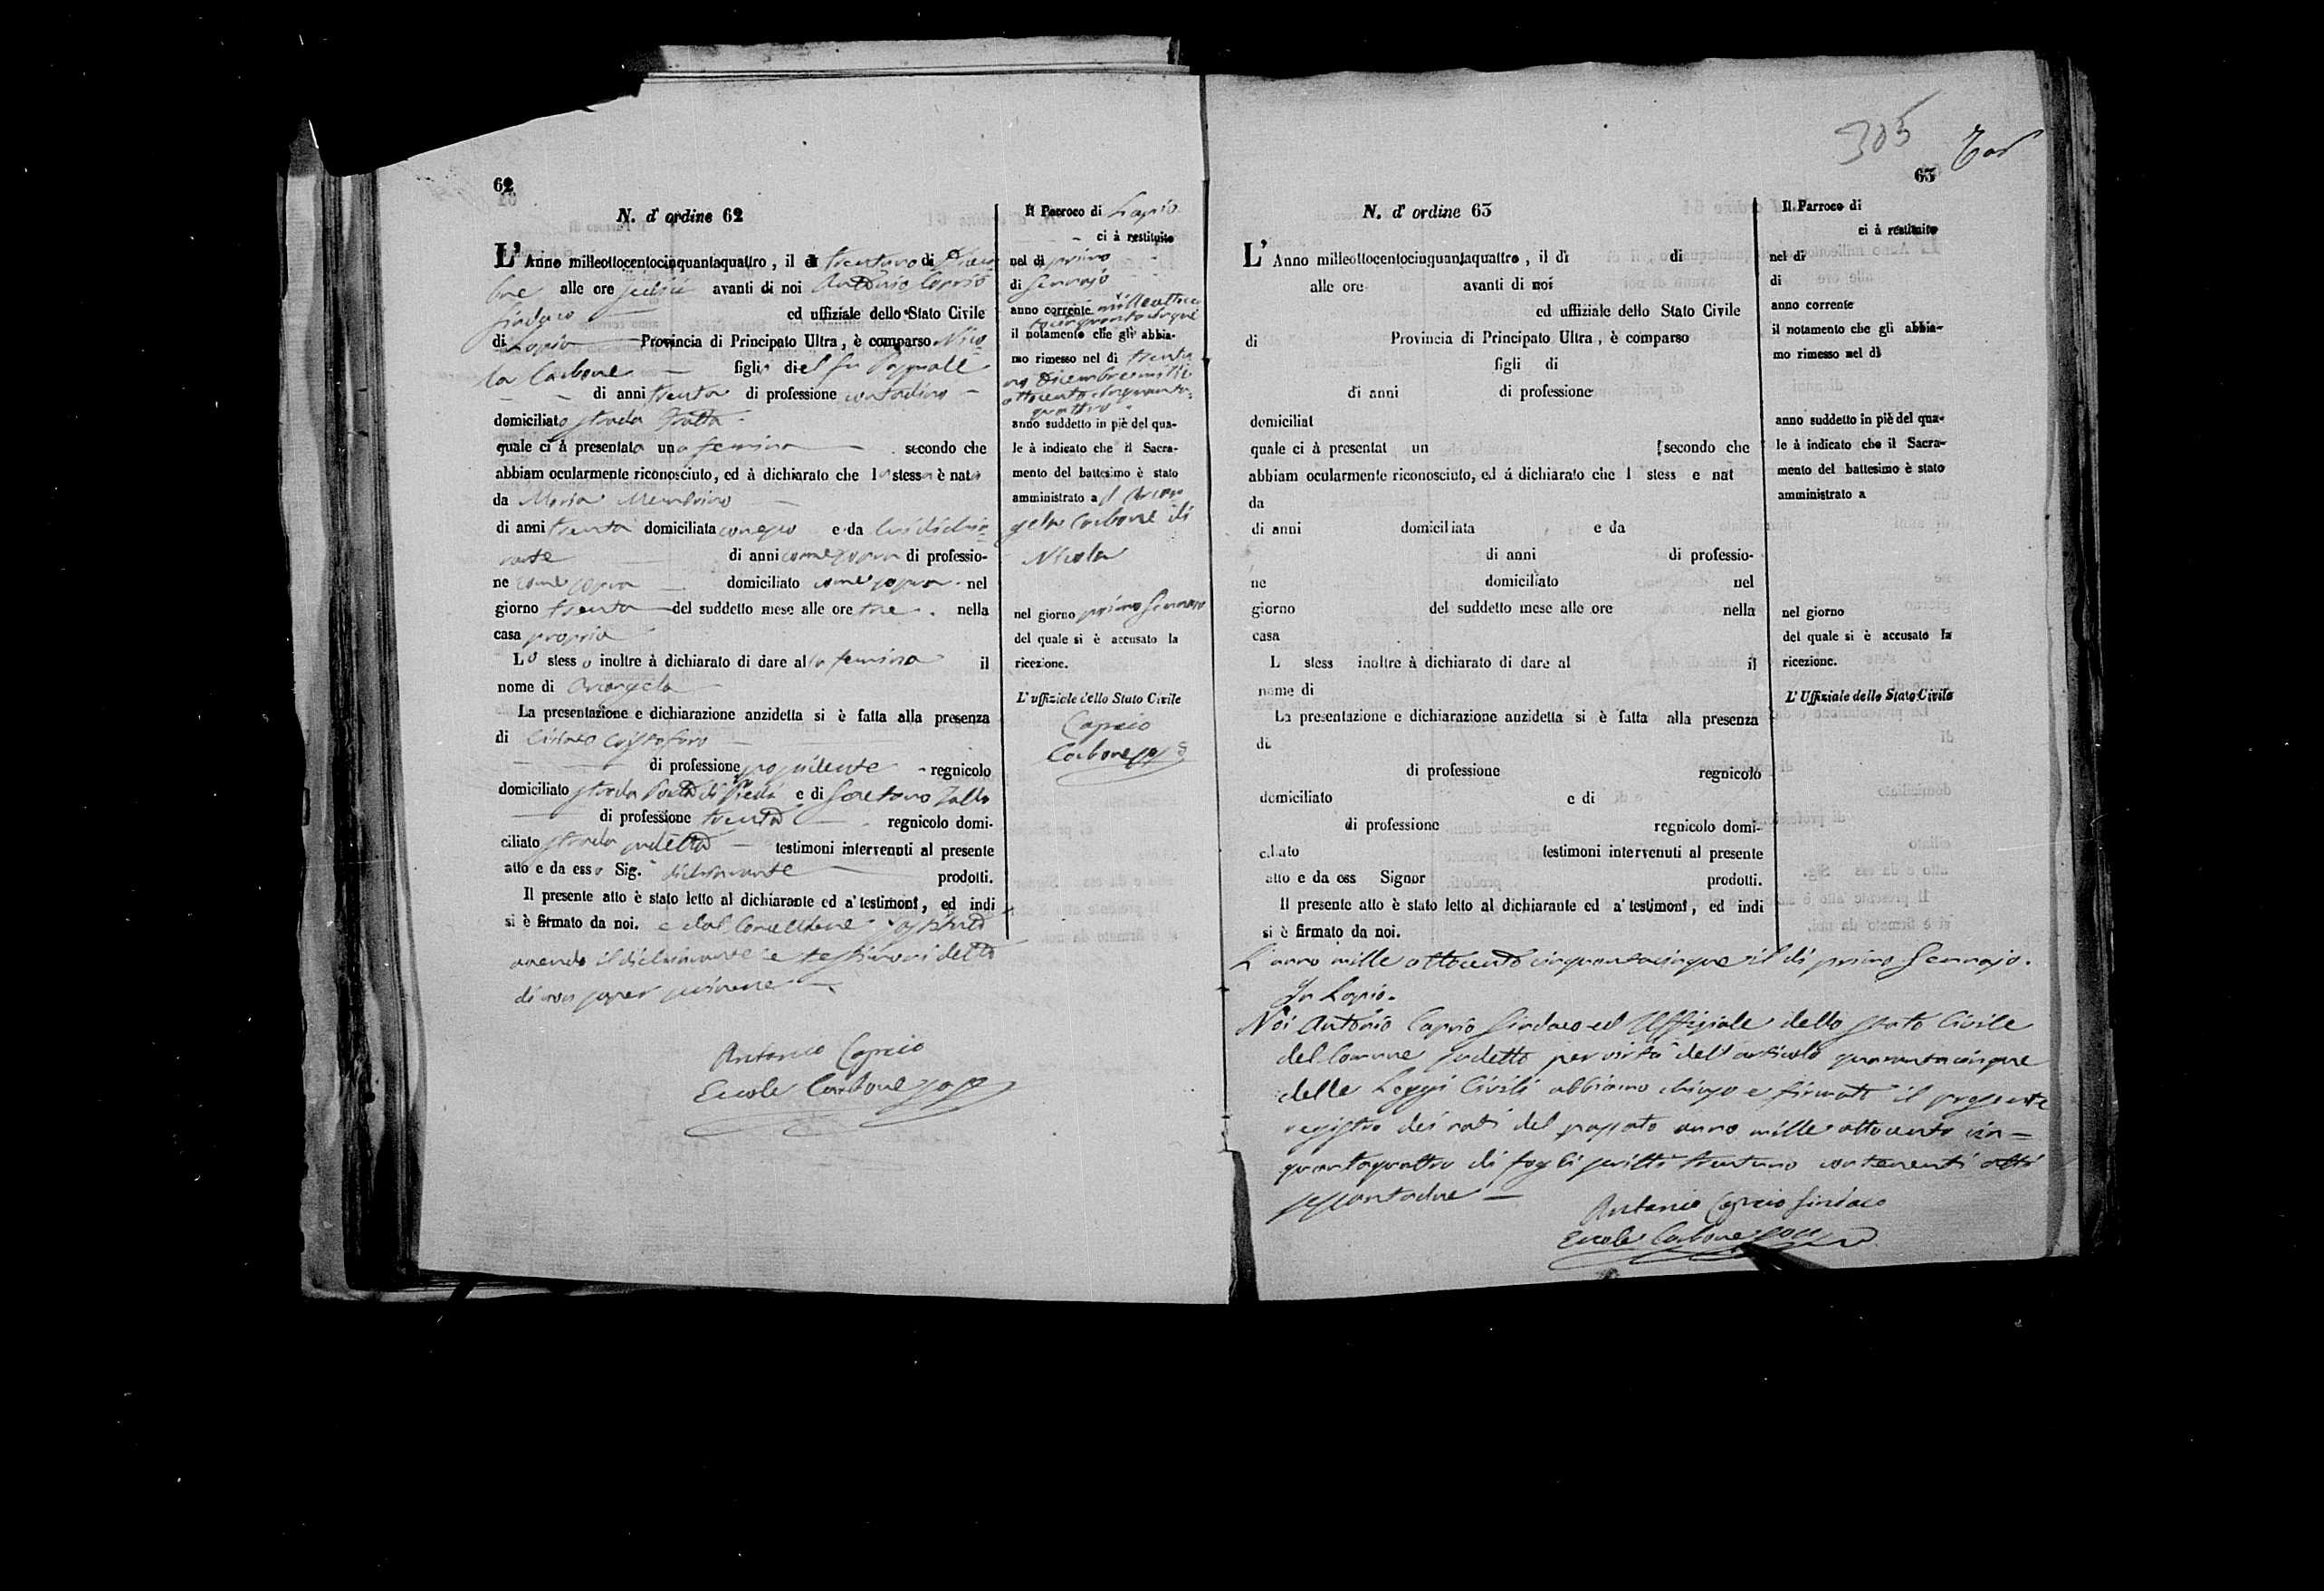 62
N. d' ordine 62
L' Anno milleottocentocinquantaquattro, il di trentuno di Dicem
bre alle ore sedici avanti di noi Antonio Caprio
Sindaco ed uffiziale dello Stato Civile
di Lapio Provincia di Principato Ultra, è comparso Nico
la Carbone figlio del fu Pasquale
di anni trenta di professione contadino
domiciliato strada
quale ci à presentato una femina secondo che
abbiam ocularmente riconosciuto, ed à dichiarato che la stessa è nata
da Maria
di anni trenta domiciliata con esso e da lui dichia
rante di anni come sopra di professio-
ne come sopra domiciliato come sopra nel
giorno trenta del suddetto mese alle ore tre nella
casa propria
Lo stesso inoltre à dichiarato di dare alla femina il
nome di Arcangela
La presentazione e dichiarazione anzidetta si è fatta alla presenza
di Cristofaro
di professione regnicolo
domiciliato strada e di Gaetano
di professione regnicolo domi-
ciliato strada sudetta testimoni intervenuti al presente
atto e da esso Sig. dichiarante prodotti.
Il presente atto è stato letto al dichiarante ed a' testimoni, ed indi
si è firmato da noi. e dal Cancelliere sostituto
avendo il dichiarante e testimoni detto
di non saper scrivere
Antonio Caprio
Ercole Carbone
Il Parroco di Lapio
ci à restituito
nel di primo
di Gennajo
anno corrente milleottocen
tocinquantacinque
il notamento che gli abbia-
mo rimesso nel di trentu
no Dicembre mille
ottocento cinquanta
quattro
anno suddetto in piè del qua-
le à indicato che il Sacra-
mento del battesimo è stato
amministrato ad Arcan
gela Carbone di
Nicola
nel giorno primo Gennaro
del quale si è accusato la
ricezione.
L' uffiziale dello Stato Civile
Caprio
Carbone
305
63
N. d' ordine 63
L' Anno milleottocentocinquantaquattro, il di di
alle ore avanti di noi
ed uffiziale dello Stato Civile
di Provincia di Principato Ultra, è comparso
figli di
di anni di professione
domiciliat
quale ci à presentat un secondo che
abbiam ocularmente riconosciuto, ed á dichiarato che l stess e nat
da
di anni domiciliata e da
di anni di professio-
ne domiciliato nel
giorno del suddetto mese alle ore nella
casa
L stess inoltre à dichiarato di dare al il
nome di
La presentazione e dichiarazione anzidetta si è fatta alla presenza
di
di professione regnicolo
domiciliato e di
di professione regnicolo domi-
ciliato testimoni intervenuti al presente
atto e da ess Signor prodotti.
Il presente atto è stato letto al dichiarante ed a' testimoni, ed indi
si è firmato da noi.
Il Parroco di
ci à restituito
nel di
di
anno corrente
il notamento che gli abbia-
mo rimesso nel di
anno suddetto in piè del qua-
le à indicato che il Sacra-
mento del battesimo è stato
amministrato a
nel giorno
del quale si è accusato la
ricezione.
L' Uffiziale dello Stato Civile
L'anno mille ottocento cinquantacinque il di primo Gennajo.
In Lapio.
Noi Antonio Caprio Sindaco ed Uffiziale dello stato Civile
del Comune sudetto per virtù dell'articolo quarantacinque
delle Leggi Civili abbiamo chiuso e firmato il presente
registro dei nati del passato anno mille ottocento cin=
quantaquattro di fogli scritti trentuno contenenti atti
sessantadue
Antonio Caprio Sindaco
Ercole Carbone